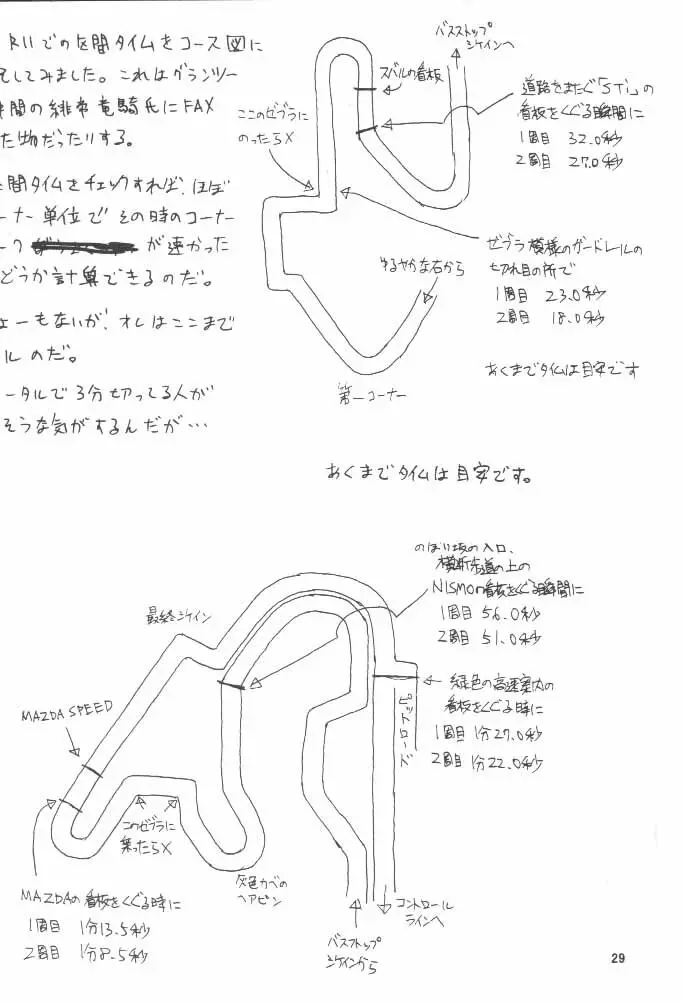 R11での区間タイムをコース図に
記してみました。これはグランツー
仲間の緋希竜騎氏にFAX
た物だったりする。
間タイムをチェックすれば、ほぼ
ーナー単位でその時のコーナー
ーク が速かった
どうか計算できるのだ。
ょーもないが、オレはここまで
ルのだ。
ータルで3分切ってる人が
そうな気がするんだが…
バスストップ
シケインへ
スバルの看板
ここのゼブラに
のったらX
道路をまたぐ「STi」の
看板をくぐる瞬間に
1周目 32.0秒
2周目 27.0秒
ゼブラ模様のガードレールの
切れ目の所で
1周目 23.0秒
2周目 18.0秒
ゆるやかな右から
第一コーナー
あくまでタイムは目安です
あくまでタイムは目安です。
のぼり坂の入口、
横断歩道の上の
NISMOの看板をくぐる瞬間に
1周目 56.0秒
2周目 51.0秒
最終シケイン
緑色の高速案内の
看板をくぐる時に
1周目 1分27.0秒
2周目 1分22.0秒
ピットロード
MAZDA SPEED
このゼブラに
乗ったらX
灰色カベの
ヘアピン
MAZDAの看板をくぐる時に
1周目 1分13.5秒
2周目 1分8.5秒
コントロール
ラインへ
バスストップ
シケインから
29